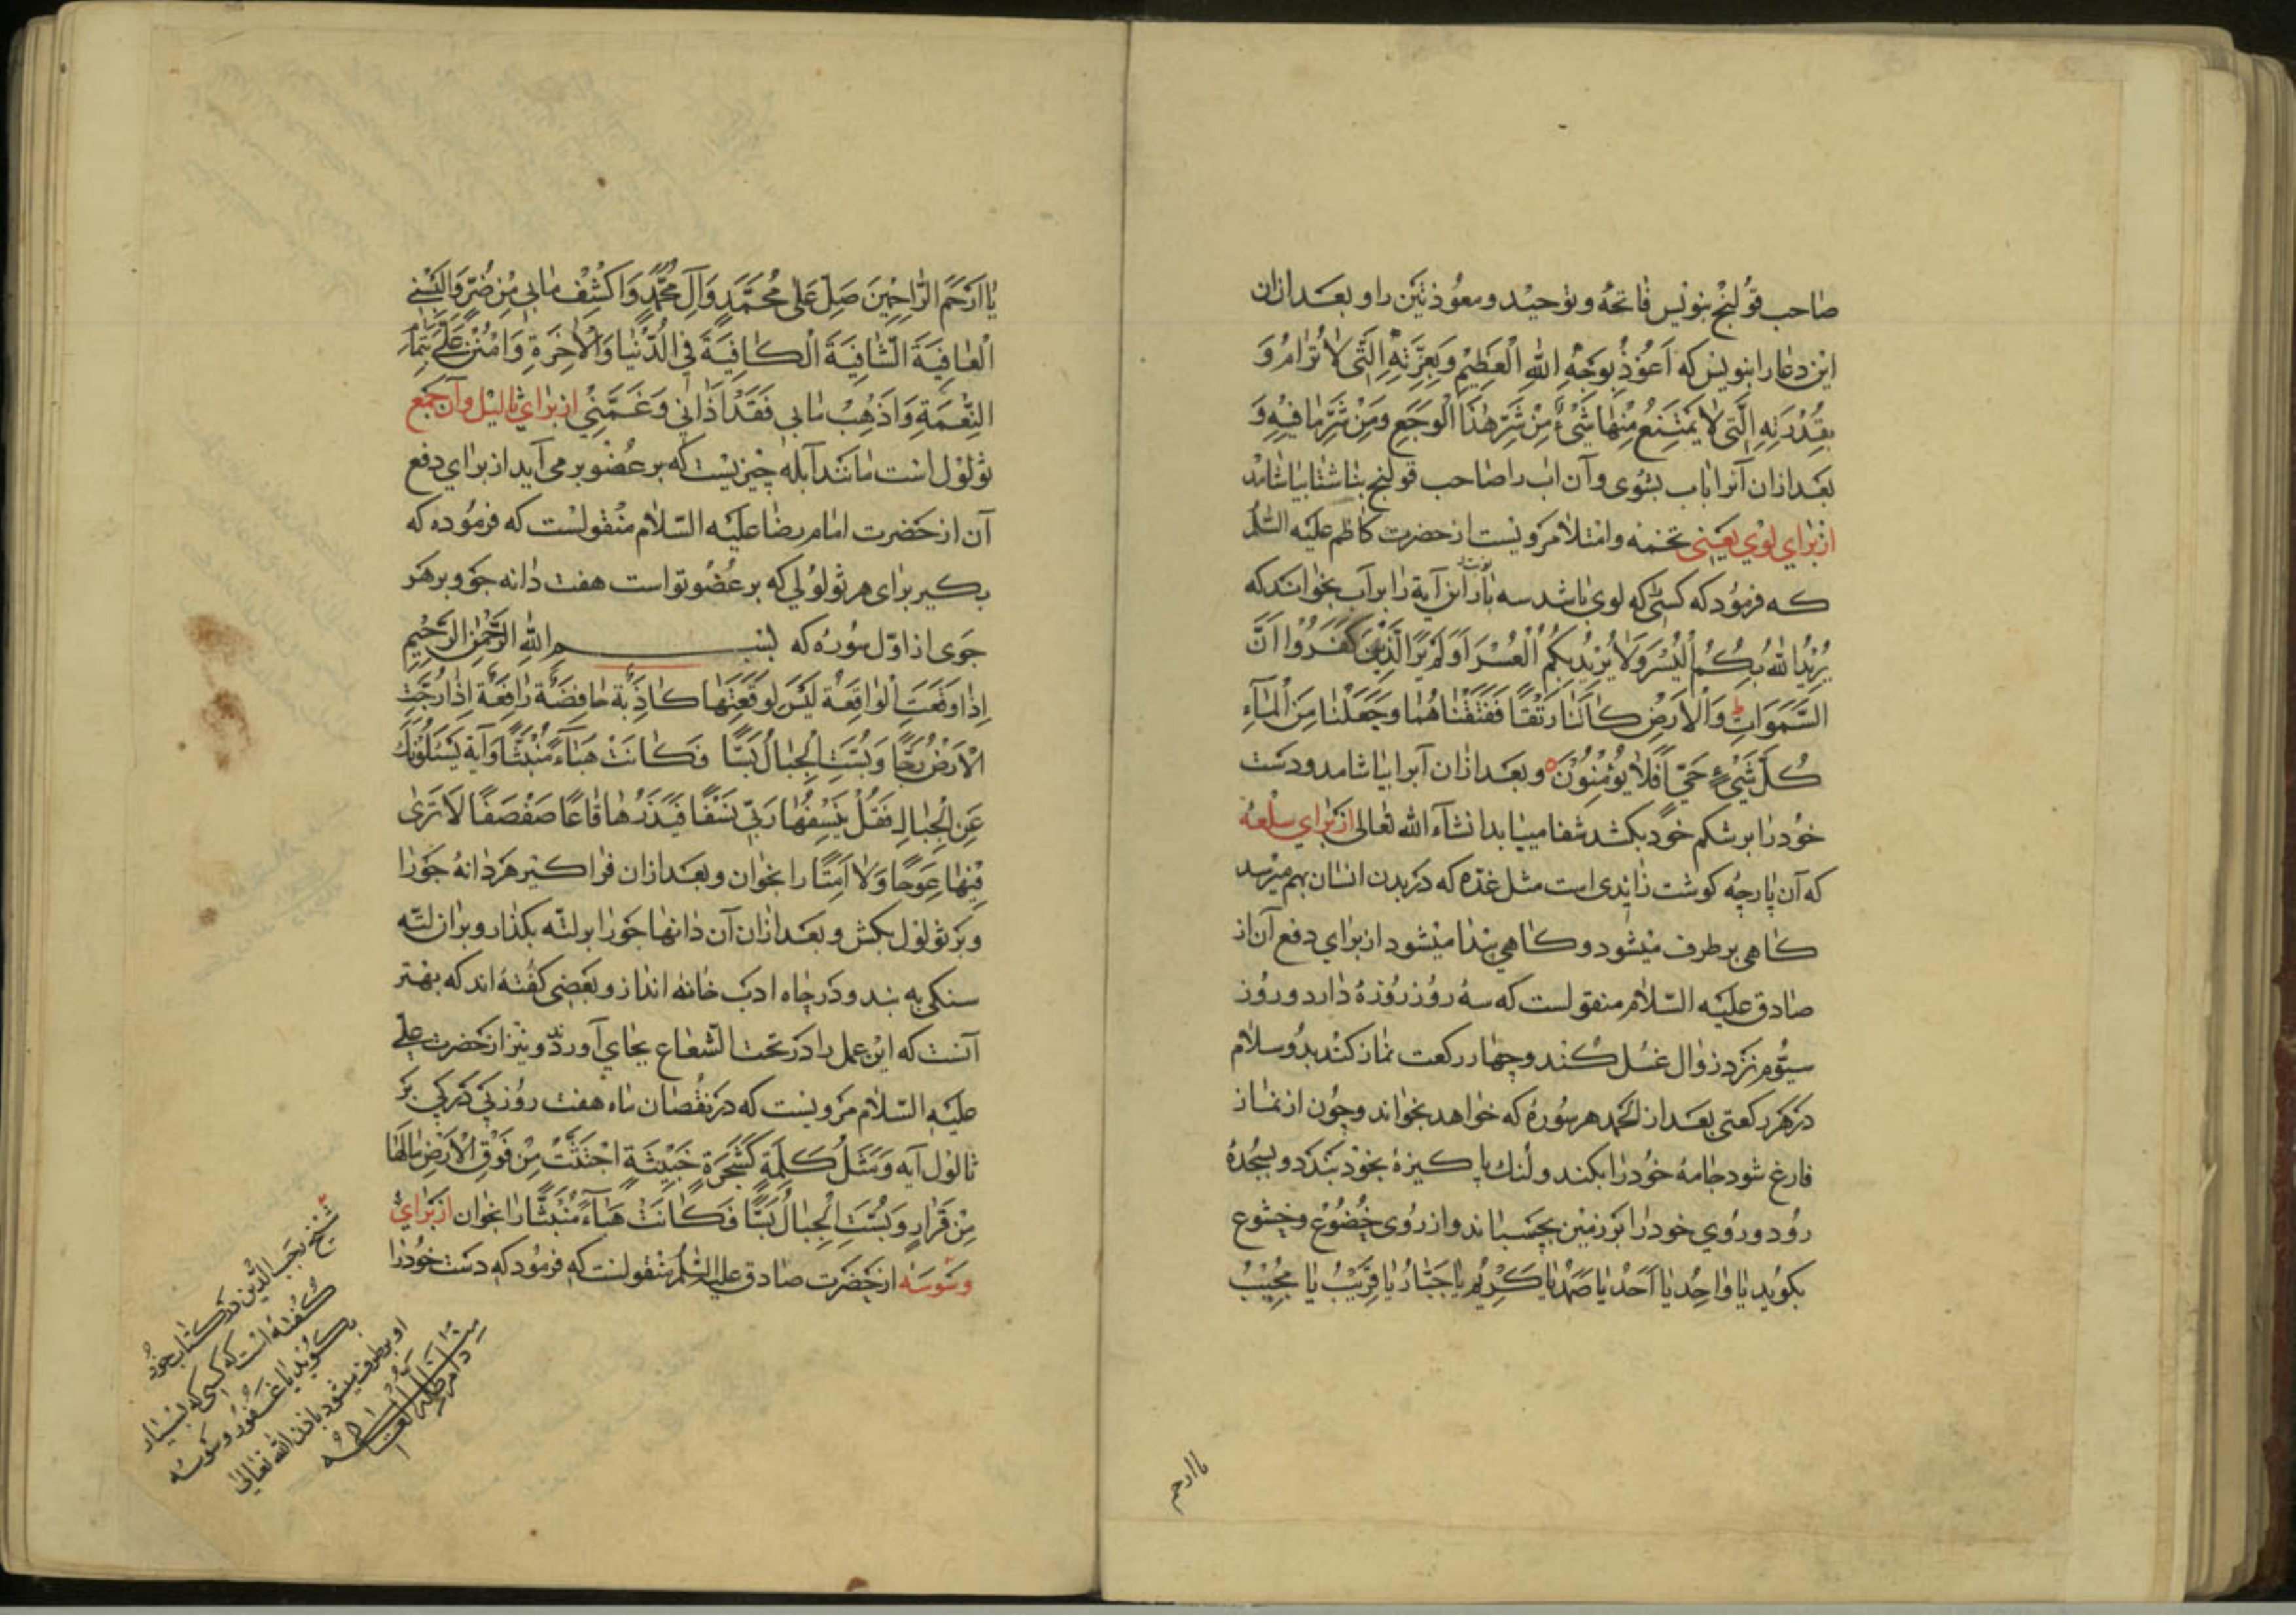 صاحب قولنج بنویس فاتحه و توحید و معوذتین را و بعد ازان
این دعا را بنویس که اَعُوذُ بِوَجْهِ اللهِ الْعَظِیمِ وَبِعِزَّتِهِ الَّتِی لا تُرامُ وَ
بِقُدْرَتِهِ الَّتِی لا یَمْتَنِعُ مِنْها شَیْءٌ مِنْ شَرِّ هٰذَا الْوَجَعِ وَمِنْ شَرِّ ما فِیهِ وَ
بعد ازان آنرا باب بشوی و آن اب را صاحب قولنج بناشتا بیاشامد
از برای لوی یعنی تخمه و امتلا مرویست از حضرت کاظم علیه السلم
که فرمود که کسی که لوی باشد سه بار این آیة را بر آب بخواند که
یُرِیدُ اللهُ بِکُمُ الْیُسْرَ وَلا یُرِیدُ بِکُمُ الْعُسْرَ اَوَلَمْ یَرَ الَّذِینَ کَفَرُوا اَنَّ
السَّمَوَاتِ وَالْاَرْضَ کانَتا رَتْقًا فَفَتَقْناهُما وَجَعَلْنا مِنَ الْمآءِ
کُلَّ شَیْءٍ حَیٍّ اَفَلا یُؤْمِنُونَ و بعد ازان آبرا بیاشامد و دست
خود را بر شکم خود بکشد شفا مییابد انشآء الله تعالی از برای سلعه
که آن پارچه کوشت زایدی است مثل غده که در بدن انسان بهم میرسد
کاهی بر طرف میشود و کاهی پیدا میشود از برای دفع آن از
صادق علیه السّلام منقولست که سه روز روزه دارد و روز
سیّوم نزد زوال غسل کند و چهار رکعت نماز کند بدو سلام
در هر رکعتی بعد از الحمد هر سوره که خواهد بخواند و چون از نماز
فارغ شود جامهٔ خود را بکند و لنك پاکیزهٔ بخود بندد و بسجده
رود و روی خود را بر زمین بچسباند و از روی خضوع و خشوع
بکوید یا واحِدُ یا اَحَدُ یا صَمَدُ یا کَرِیمُ یا جَبّارُ یا قَرِیبُ یا مُجِیبُ
یا ارحم
یا اَرْحَمَ الرّاحِمِینَ صَلِّ عَلیٰ مُحَمَّدٍ وَآلِ مُحَمَّدٍ وَاکْشِفْ ما بِی مِنْ ضُرٍّ وَاَلْبِسْنِی
الْعافِیَةَ الشّافِیَةَ الْکافِیَةَ فِی الدُّنْیا وَالْاٰخِرَةِ وَامْنُنْ عَلَیَّ بِتَمامِ
النِّعْمَةِ وَاَذْهِبْ ما بِی فَقَدْ اَذانِی وَغَمَّنِی از برای ثالیل و آن جمع
ثولول است مانند آبله چیزیست که بر عضو بر می آید از برای دفع
آن از حضرت امام رضا علیه السّلام منقولست که فرموده که
بکیر برای هر ثولولی که بر عضو تو است هفت دانه جو و بر هر
جوی از اوّل سوره که بِسْمِ اللهِ الرَّحْمٰنِ الرَّحِیمِ
اِذا وَقَعَتِ الْواقِعَةُ لَیْسَ لِوَقْعَتِها کاذِبَةٌ خافِضَةٌ رافِعَةٌ اِذا رُجَّتِ
الْاَرْضُ رَجًّا وَبُسَّتِ الْجِبالُ بَسًّا فَکانَتْ هَبآءً مُنْبَثًّا و آیه یَسْئَلُونَكَ
عَنِ الْجِبالِ فَقُلْ یَنْسِفُها رَبِّی نَسْفًا فَیَذَرُها قاعًا صَفْصَفًا لا تَریٰ
فِیها عِوَجًا وَلا اَمْتًا را بخوان و بعد ازان فراکیر هر دانهٔ جو را
و بر ثولول بکش و بعد ازان آن دانها جو را بر لته بکذار و بران لته
سنکی به بند و در چاه ادب خانه انداز و بعضی کفته اند که بهتر
آنست که این عمل را در تحت الشعاع بجای آورد و نیز از حضرت علی
علیه السّلام مرویست که در نقصان ماه هفت روز پی در پی بر
ثالول آیه وَمَثَلُ کَلِمَةٍ کَشَجَرَةٍ خَبِیثَةٍ اجْتُثَّتْ مِنْ فَوْقِ الْاَرْضِ مالَها
مِنْ قَرارٍ وَبُسَّتِ الْجِبالُ بَسًّا فَکانَتْ هَبآءً مُنْبَثًّا را بخوان از برای
وسوسه از حضرت صادق علیه السلم منقولست که فرمود که دست خود را
شیخ رجب الدین در کتاب خود
کفته است که کسی که بسیار
بکوید یا غفور وسوسه
او بر طرف میشود باذن الله تعالی